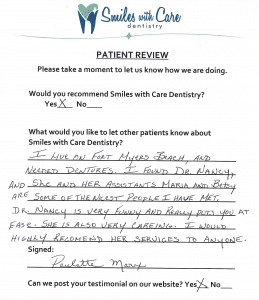 Smiles with Care
dentistry
PATIENT REVIEW
Please take a moment to let us know how we are doing.
Would you recommend Smiles with Care Dentistry?
Yes X No
What would you like to let other patients know about
Smiles with Care Dentistry?
I LIVE ON FORT MYERS BEACH, AND
NEEDED DENTURES. I FOUND DR. NANCY,
AND SHE AND HER ASSISTANTS MARIA AND BETSY
ARE SOME OF THE NICEST PEOPLE I HAVE MET.
DR. NANCY IS VERY FUNNY AND REALLY PUTS YOU AT
EASE. SHE IS ALSO VERY CAREING. I WOULD
HIGHLY RECOMEND HER SERVICES TO ANYONE.
Signed:
Paulette
Can we post your testimonial on our website? Yes X No